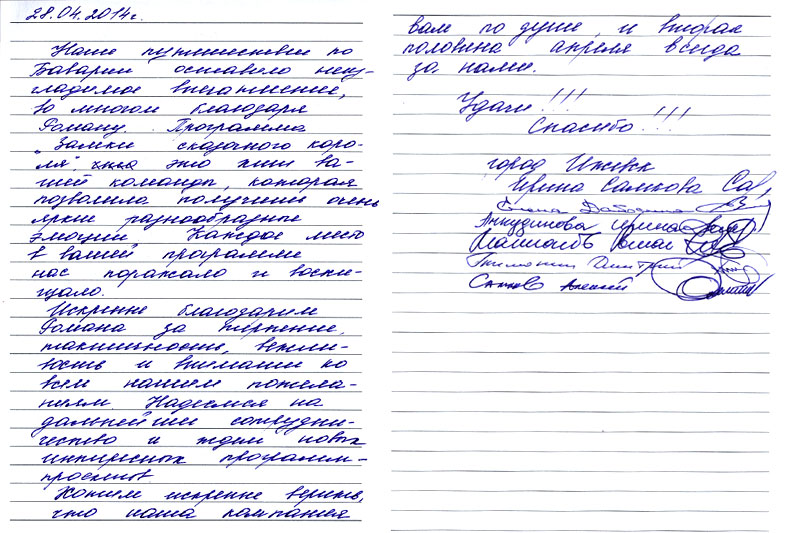 28.04.2014г.
Наше путешествие по
Баварии оставило неиз-
гладимое впечатление,
во многом благодаря
Роману. Программа
„Замки сказочного коро-
ля", это хит ва-
шей команды, которая
позволила получить очень
яркие разнообразные
эмоции. Каждое место
в вашей программе
нас поражало и восхи-
щало.
Искренне благодарим
Романа за терпение,
тактичность, вежли-
вость и внимание ко
всем нашим пожела-
ниям. Надеемся на
дальнейшее сотрудни-
чество и ждем новых
интересных программ-
проектов
Хотим искренне верить,
что наша компания
вам по душе, и вторая
половина апреля всегда
за нами.
Удачи!!!
Спасибо!!!
город Ижевск
Ирина Саликова
Елена
Анкудинова Ирина
Дмитрий
Алексей